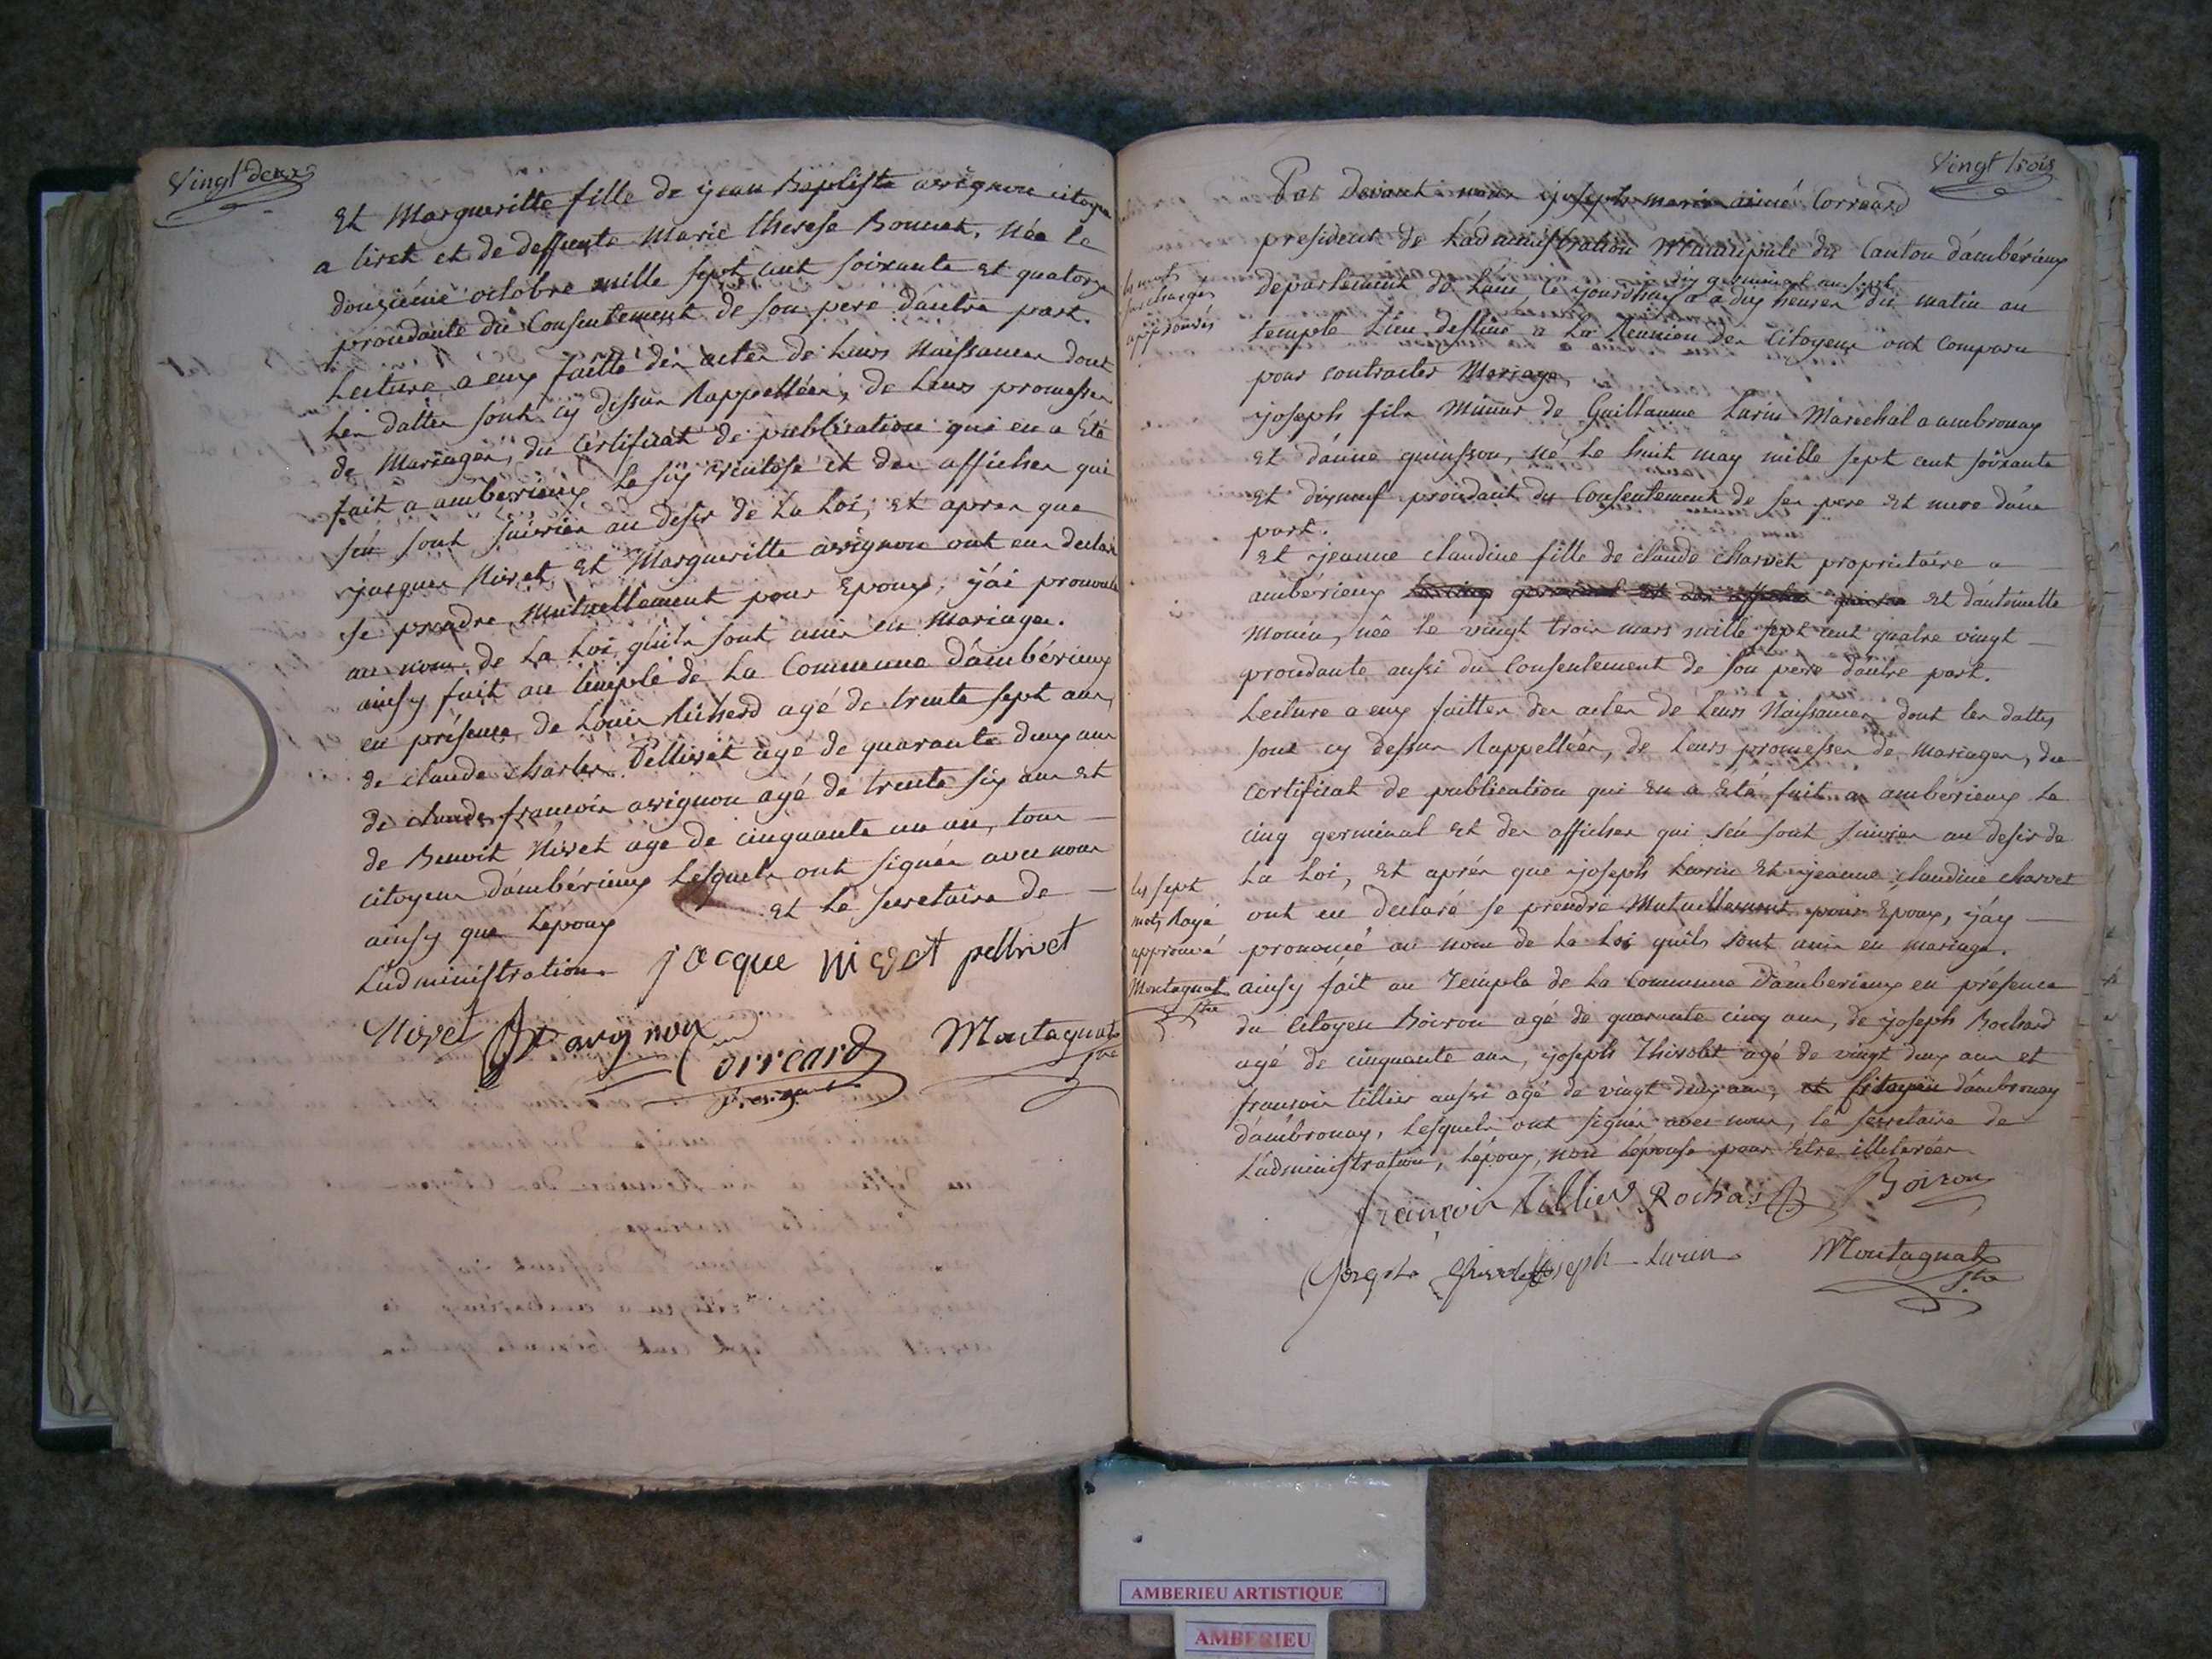 Vingt deux
Et Margueritte fille de jean Baptiste avignon citoyen
a tiret et de deffunte Marie therese Bonnet, Née le
douziéme octobre mille sept cent soixante et quatorze
procedante du Consentement de son pere d'autre part.
Lecture a eux faitte des actes de leurs Naissances dont
les dattes sont cy dessus Rappellées, de leurs promesses
de Mariages, du Certificat de publication qui en a Eté
fait a amberieux le six ventose et des affiches qui
s'en sont suivies au desir de la Loi, et apres que
jacques Nivet et Margueritte avignon ont eu declaré
se prendre Mutuellement pour Epoux, j'ai prononcé
au nom de La Loi, quils sont unis en Mariages.
ainsy fait au temple de La Commune d'ambérieux
en présence de Louis Richerd agé de trente sept ans,
de claude charles Pellivet agé de quarante deux ans
de claude francois avignon agé de trente six ans et
de Benoit Nivet agé de cinquante un an, tous
citoyens d'ambérieux Lesquels ont signés avec nous
ainsy que Lepoux et Le secretaire de
L'administration.
jacque nivet pellivet
Nivet avignon Correard Montagnat
président Sre
Vingt trois
Par Devant nous joseph marie aimé Correard
president de L'administration Municipale du Canton d'ambérieux
six germinal an sept
Departement de L'ain, ce jourd'huy a dix heures du matin au
les mots
surchargés
approuvés
temple Lieu destiné a La Reunion des Citoyens ont Comparu
pour contracter Mariage,
joseph fils Mineur de Guillaume Lurin Marechal a ambronay
Et d'anne quinsson, né le huit may mille sept cent soixante
Et dixneuf procedant du Consentement de ses pere Et mere d'une
part.
Et jeanne claudine fille de claude charvet propriétaire a
ambérieux le cinq germinal et des affiches qui s'en Et d'antoinette
Monin, née le vingt trois mars mille sept cent quatre vingt
procedante aussi du Consentement de son pere d'autre part.
Lecture a eux faittes des actes de leurs Naissances dont les dattes
sont cy dessus Rappellées, de leurs promesses de Mariages, du
certificat de publication qui En a Eté fait a ambérieux Le
cinq germinal Et des affiches qui s'en sont suivies au desir de
La Loi, Et aprés que joseph Lurin Et jeanne claudine charvet
ont eu declaré se prendre Mutuellement pour Epoux, j'ay
prononcé au nom de La Loi quils sont unis en mariage.
les sept
mots Rayé
approuvé
Montagnat
Sre
ainsy fait au Temple de La Commune D'amberieux en présence
du Citoyen Boiron agé de quarante cinq ans, de joseph Rochard
agé de cinquante ans, joseph Thivolet agé de vingt deux ans et
francois tillier aussi agé de vingt deux ans, et Citoyen d'ambronay
d'ambronay, Lesquels ont signés avec nous, le secretaire de
L'administration, Lépoux, non Lépouse pour Etre illeterée
francois tillier Rochard Boiron
joseph thivolet joseph Lurin Montagnat
Sre
AMBERIEU ARTISTIQUE
AMBERIEU